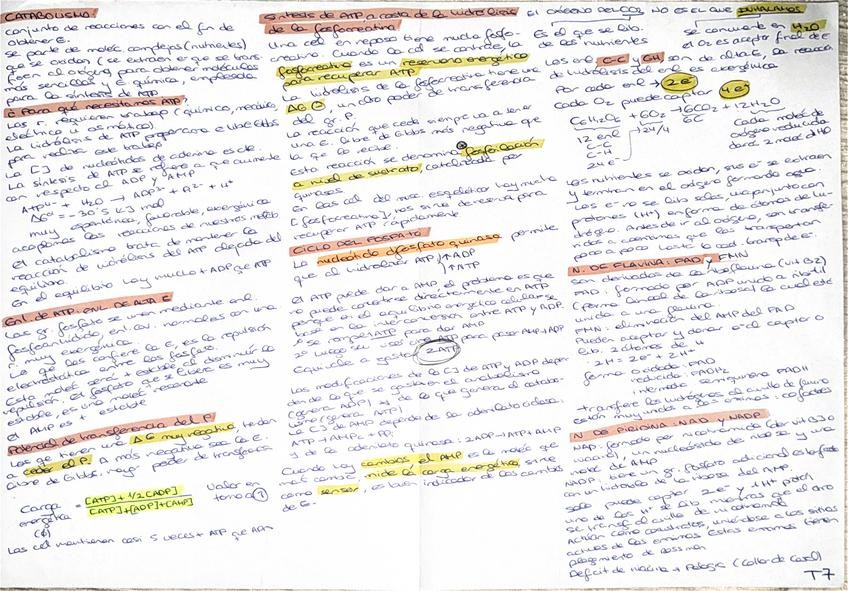 CATABOLISMO:
conjunto de reacciones con el fin de
obtener E.
se parte de moléc complejas (nutrientes)
que se oxidan (se extraen e- que se trans-
fieren al oxígeno) para obtener moléculas
más sencillas y E química, empleada
para la síntesis de ATP
¿Para qué necesitamos ATP?
eléctrico u osmótico)
La hidrólisis de ATP proporciona E libre Gibbs
para realizar este trabajo
La [ ] de nucleótidos de adenina es cte.
La síntesis de ATP se refiere a que aumente
con respecto al ADP y AMP
muy espontánea, favorable, exergónica
acoplamos las reacciones de nuestro metab
el catabolismo trata de mantener la
reacción de hidrólisis del ATP alejada del
equilibrio.
En el equilibrio hay mucho + ADP que ATP
Enl. de ATP: ENL. DE ALTA E
Los gr. fosfato se unen mediante enl.
fosfoanhidrido, enl. cov. normales con una
r. muy exergónica
Lo que les confiere la E, es la repulsión
electrostática entre los fosfatos.
Esta moléc será + estable al disminuir la
repulsión. El fosfato que se libera es muy
estable, es una moléc resonante
el AMP es + estable
Potencial de transferencia del P.
Los que tienen una ΔG muy negativa, tienden
a ceder el P. A más negativa sea la E.
libre de Gibbs, mayor poder de transferencia
Carga energética (φ) = [ATP] + 1/2[ADP] / [ATP]+[ADP]+[AMP]
Valor en torno a 1
Las cel mantienen casi 5 veces + ATP que ADP
Síntesis de ATP a costa de la hidrólisis
de la fosfocreatina
Una cel en reposo tiene mucha fosfo-
creatina. Cuando la cel se contrae, la
fosfocreatina es un reservorio energético
para recuperar ATP
La hidrólisis de la fosfocreatina tiene una
ΔG ⊖, un alto poder de transferencia
del gr. P.
La reacción que cede siempre va a tener
una E. libre de Gibbs más negativa que
la que lo recibe.
Esta reacción se denomina fosforilación
a nivel de sustrato, catalizada por
quinasas
En las cel del musc esquelético hay mucha
[fosfocreatina], nos sirve de reserva para
recuperar ATP rápidamente
CICLO DEL FOSFATO
La nucleótido difosfato quinasa permite
que al hidrolizar ATP ↑ADP
↑ATP
El ATP puede dar a AMP el problema es que
no puede convertirse directamente en ATP
porque en el equilibrio energético celular se
se rompe ATP para dar AMP
Equivale a gastar 2 ATP
Las modificaciones de la [ ] de ATP y ADP depen
den de lo que se gasta en el anabolismo
(genera ADP) y de lo que genera el catabo-
lismo (genera ATP)
La [ ] de AMP depende de la adenilato ciclasa:
ATP → AMPc + PPi
y de la adenilato quinasa: 2ADP → ATP + AMP
Cuando hay cambios, el AMP es la moléc que
más cambia, mide la carga energética, sirve
como sensor, es buen indicador de los cambios
de E.
El OXÍGENO DEL CO2 NO ES EL QUE INHALAMOS
Es el que se lib. de los nutrientes
se convierte en H2O
el O2 es aceptor final de e-
Los enl C-C y C-H, son de alta E, la reacción
de hidrólisis del enl es exergónica
Por cada enl → 2 e-
Cada O2 puede captar 4 e-
C6H12O6 + 6O2 → 6CO2 + 12H2O
12 enl
C-C
C-H
24 e-
24/4
6C
Cada moléc de
oxígeno reducida
dará 2 moléc d H2O
Los nutrientes se oxidan, sus e- se extraen
y terminan en el oxígeno formando agua.
Los e- no se lib solos, van junto con
protones (H+) en forma de átomos de hi-
drógeno. Antes de ir al oxígeno, son transfe-
ridos a coenzimas que los transportan
poco a poco hasta la cad. transp de e-.
N. DE FLAVINA: FAD Y FMN
son derivados de la riboflavina (vit B2)
FAD: formado por ADP unido a ribitol
unida a una flavina
FMN: eliminación del AMP del FAD
Pueden aceptar y donar e- al captar o
lib. 2 átomos de H
2H = 2e- + 2H+
forma oxidada: FAD
reducida: FADH2
intermedia semiquinona FADH
transfiere los hidrógenos al anillo de flavina
están muy unidos a las enzimas: cofactores
N. DE PIRIDINA: NAD Y NADP
moléc de AMP
NADP: tiene un gr. fosfato adicional esterificado
con un hidroxilo de la ribosa del AMP.
solo puede captar 2 e- y 1 H+ protón
uno de los H+ se lib. mientras que el otro
se transf al anillo de nicotinamida
Actúan como cosustratos, uniéndose a los sitios
activos de las enzimas. Estas enzimas tienen
plegamiento de Rossman
Déficit de niacina → Pelagra (Collar de Casal)
T7